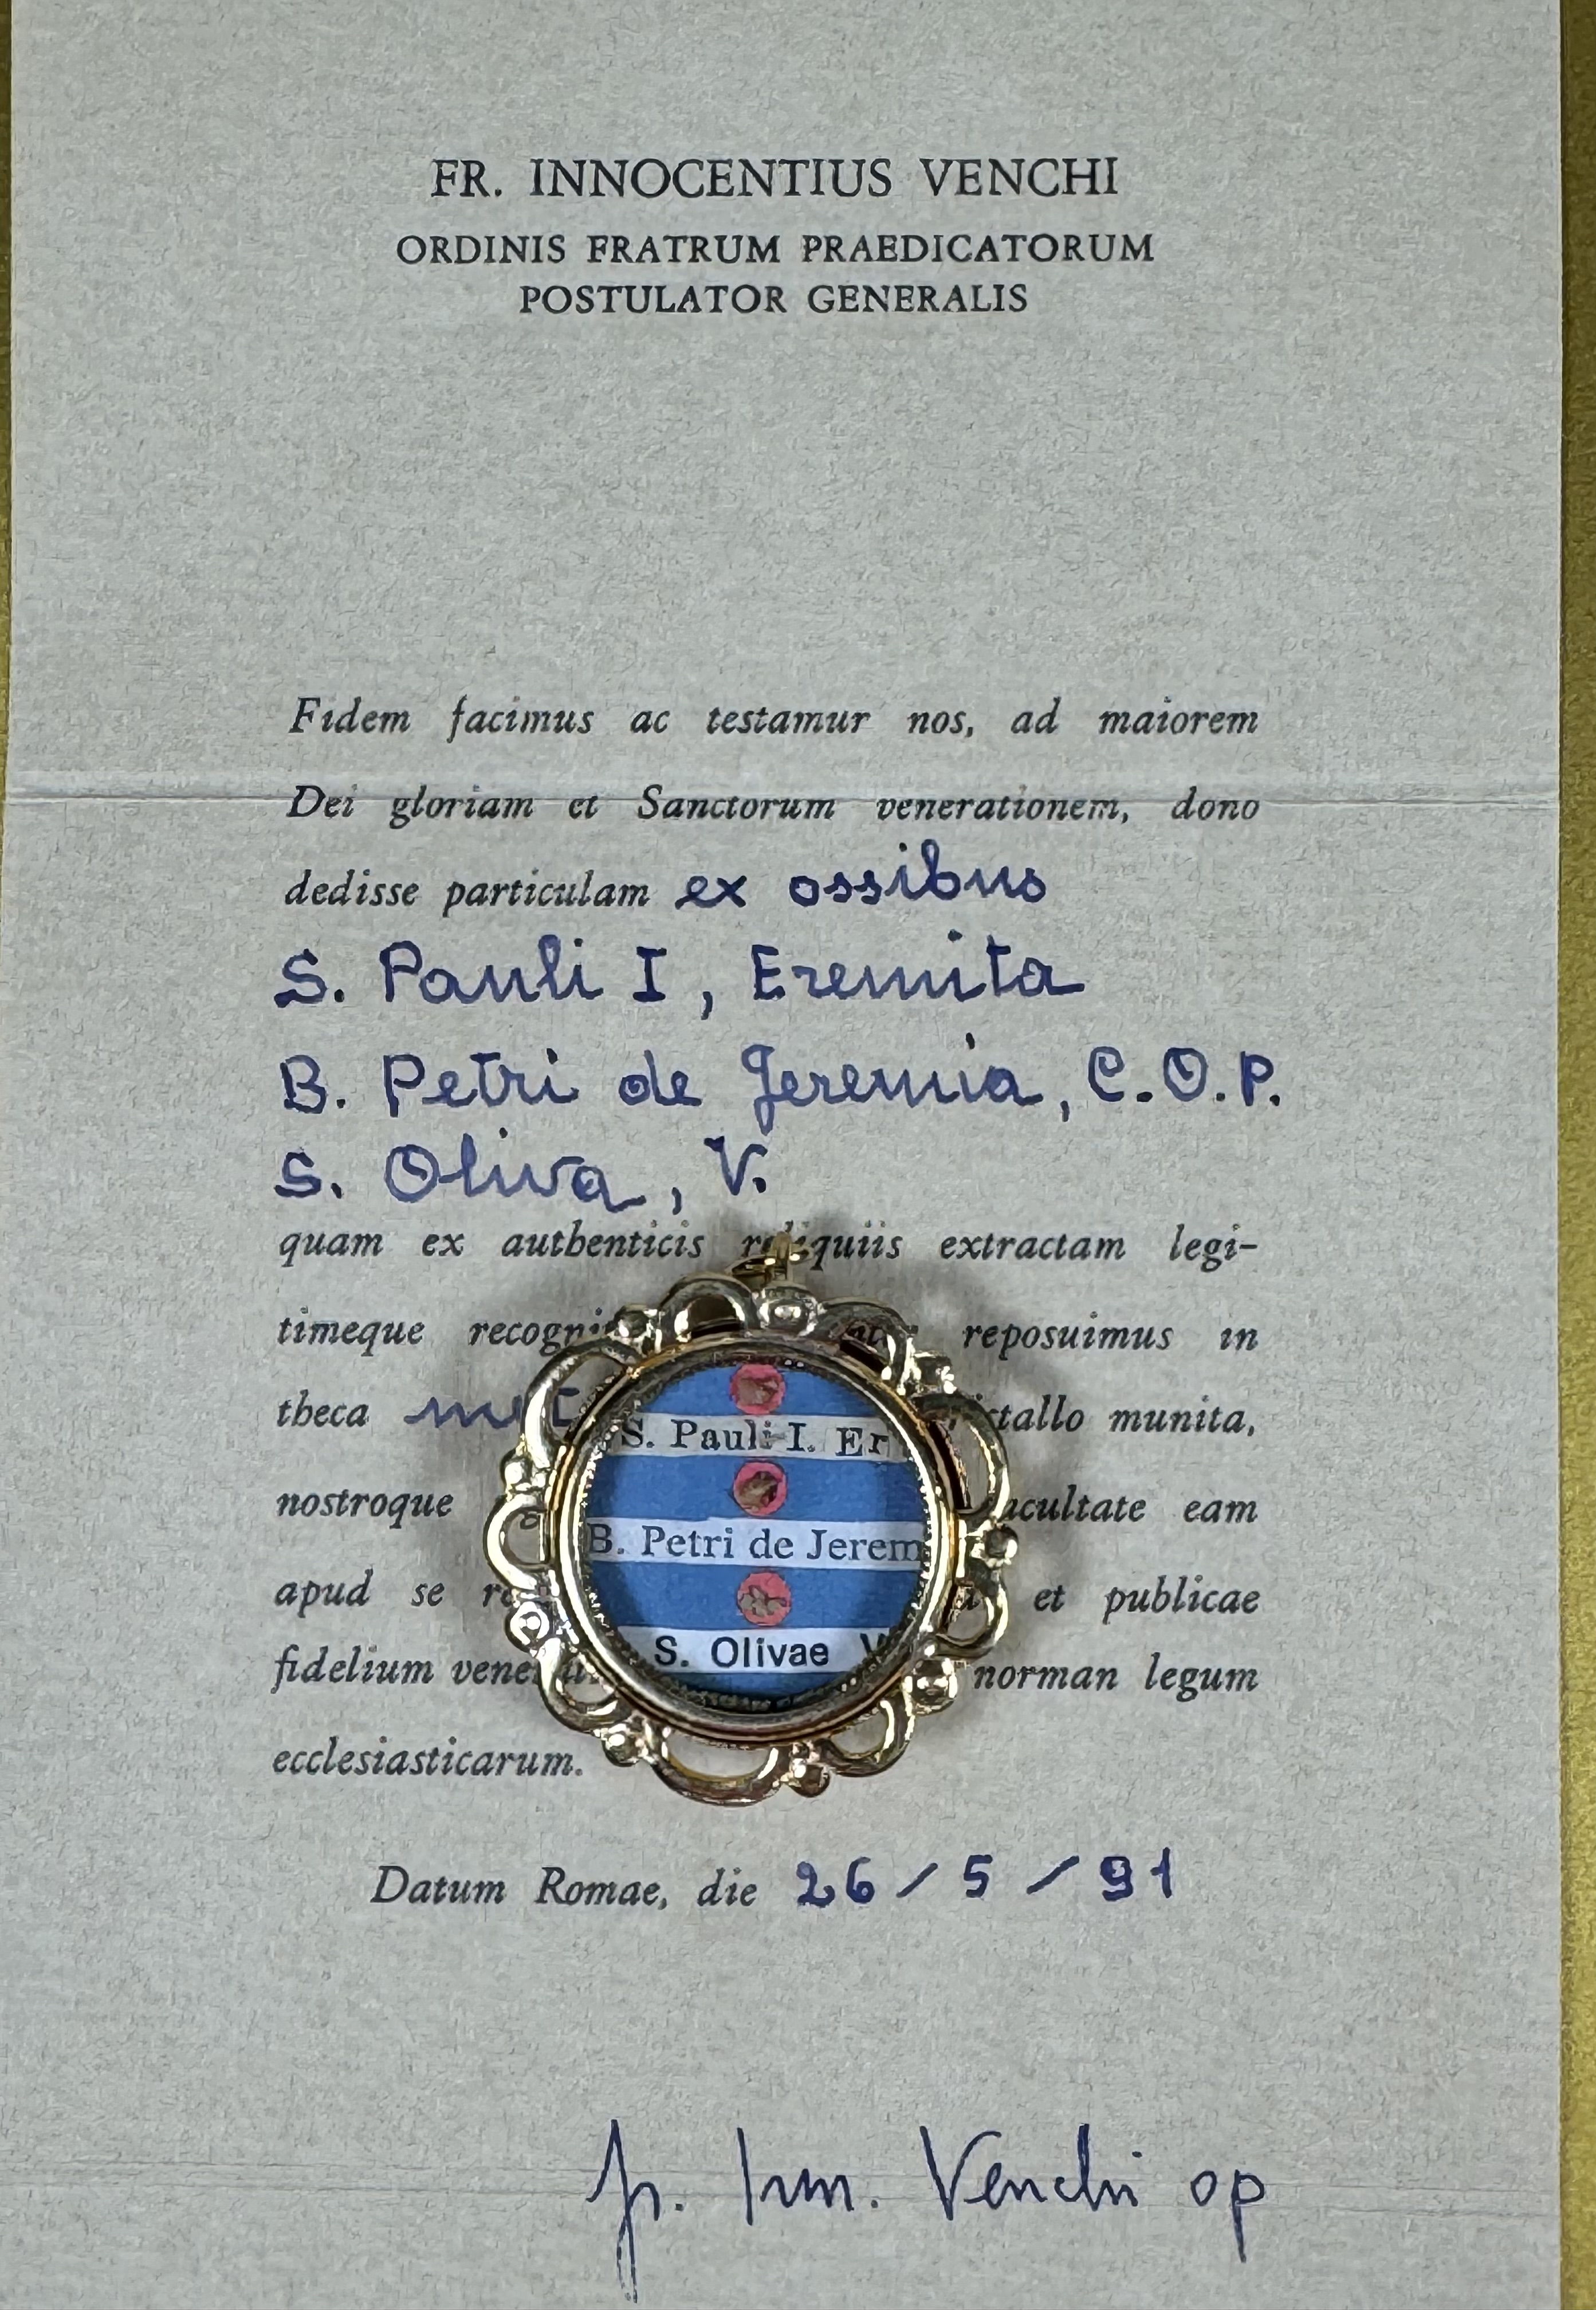 FR. INNOCENTIUS VENCHI
ORDINIS FRATRUM PRAEDICATORUM
POSTULATOR GENERALIS
Fidem facimus ac testamur nos, ad maiorem
Dei gloriam et Sanctorum venerationem, dono
dedisse particulam ex ossibus
S. Pauli I, Eremita
B. Petri de Jeremia, C.O.P.
S. Oliva, V.
quam ex authenticis reliquiis extractam legi-
timeque reposuimus in
theca munita,
nostroque eam
apud se et publicae
fidelium norman legum
ecclesiasticarum.
S. Pauli I. Er
B. Petri de Jerem
S. Olivae V
Datum Romae, die 26/5/91
fr. Inn. Venchi op